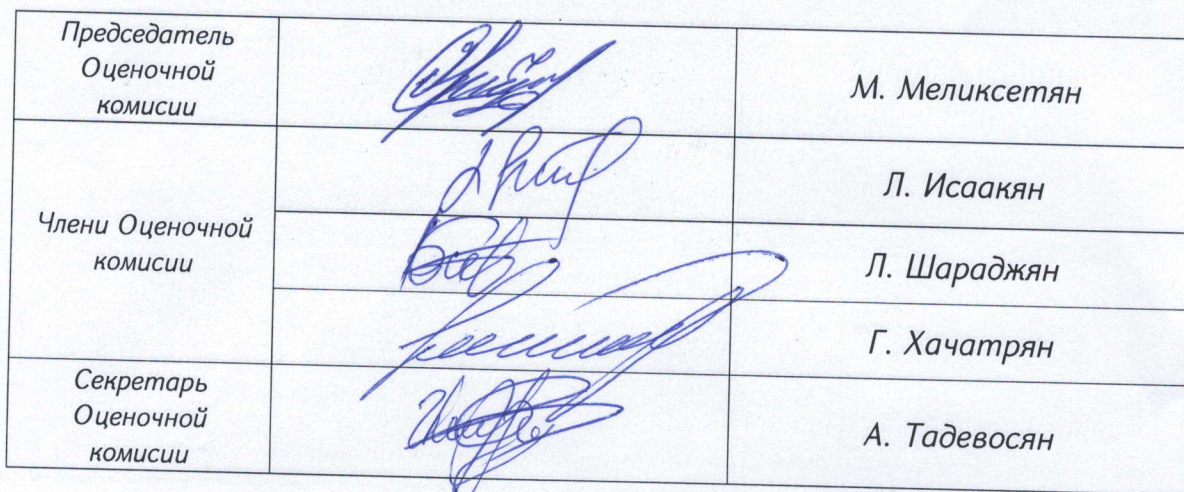 Председатель
Оценочной
комисии
М. Меликсетян
Члени Оценочной
комисии
Л. Исаакян
Л. Шараджян
Г. Хачатрян
Секретарь
Оценочной
комисии
А. Тадевосян